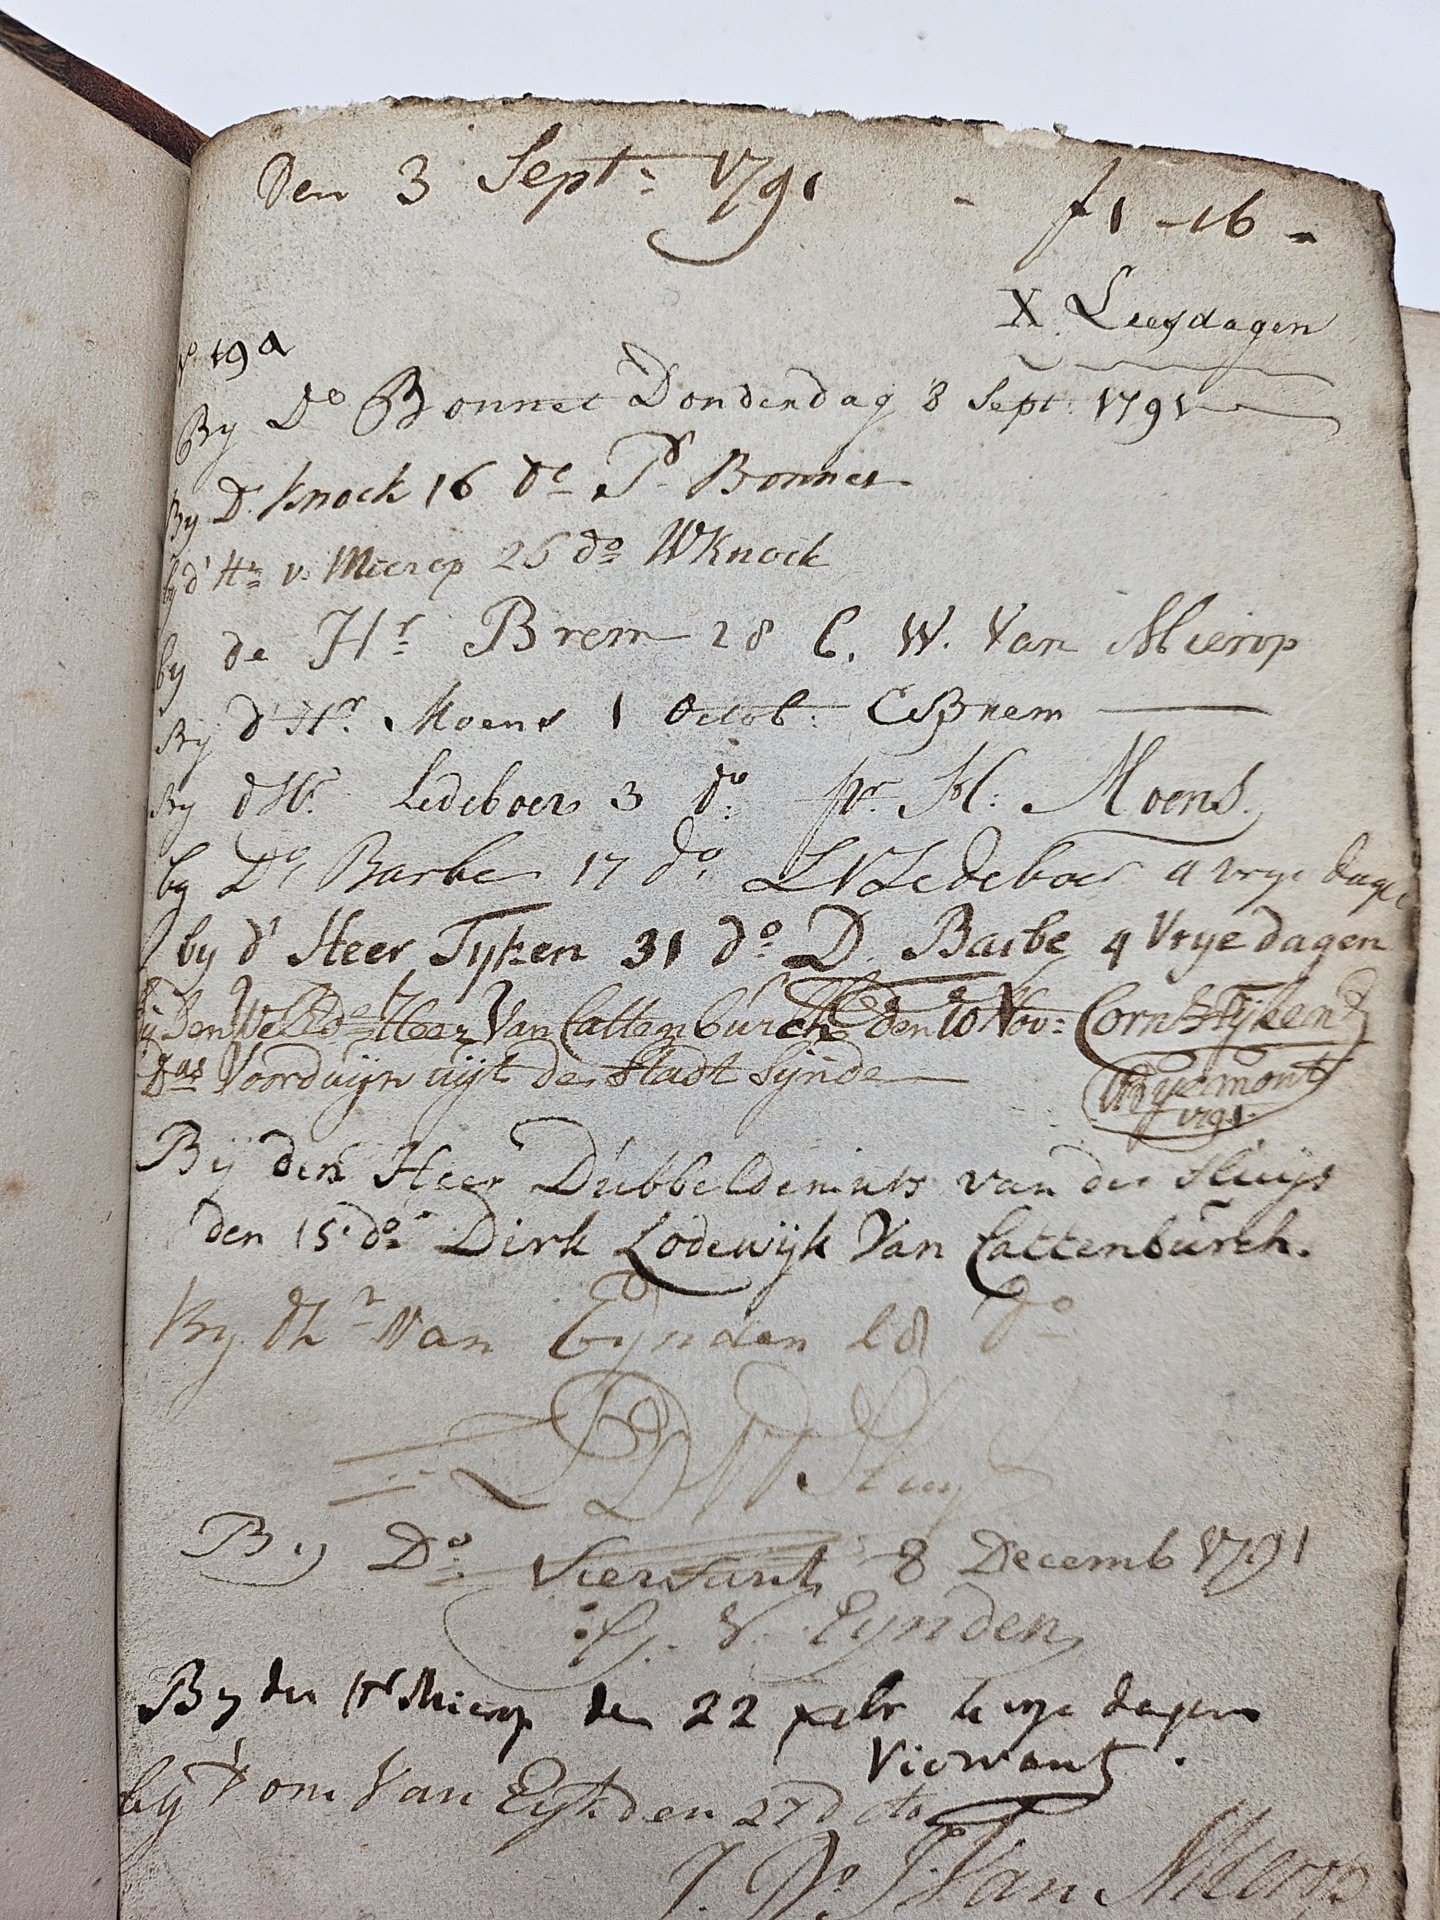 Den 3 Sept: 1791 - f 1 - 16 -
X Leesdagen
No 19a
By Do Bonnet Donderdag 8 Sept: 1791
By D. Knock 16 do Pd Bonnet
by d' Hr v. Mierop 26 do W Knock
by de Hr Brem 28 C. W. Van Mierop
By d' Hr. Moens 1 Octob: CsBrem
By d Hr. Ledeboer 3 do: pr. H: Moens.
by Do, Barbe 17 do, LVLedeboer 4 vrye dagen
by d' Heer Tyken 31 do D. Barbe 4 Vrye dagen
By Den Heer Van Cattenburch den 10 Nov: Corns Tyken
das Voorduijn uijt de Stadt Sijnde
Pyermont
1791.
Bij den Heer Dubbeldemuts van der Sluijs
den 15 do: Dirk Lodewijk Van Cattenburch.
By dhr Van Eynden 18 do
DV Sluys
By Do. Viervant 8 Decemb 1791
G. V. Eynden
By den Hr Mierop den 22 xbr 4 vrye dagen
Viervant.
bij d' om Van Eyk den 27 dito
J. Do. J: Van Mierop